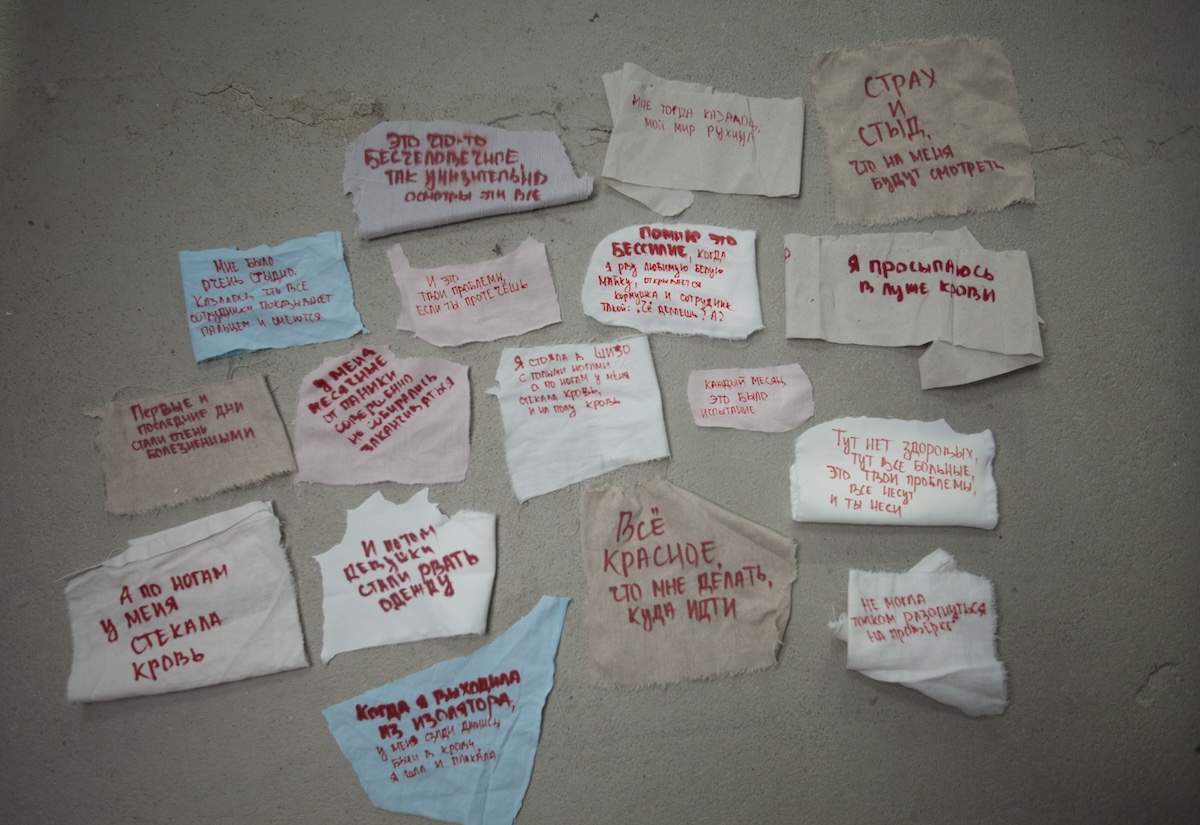 ЭТО ЧТО-ТО
БЕСЧЕЛОВЕЧНОЕ
ТАК УНИЗИТЕЛЬНО
ОСМОТРЫ ЭТИ ВСЕ
МНЕ ТОГДА КАЗАЛОСЬ,
МОЙ МИР РУХНУЛ
СТРАХ
И
СТЫД,
ЧТО НА МЕНЯ
БУДУТ СМОТРЕТЬ
МНЕ БЫЛО
ОЧЕНЬ СТЫДНО.
КАЗАЛОСЬ, ЧТО ВСЕ
СОТРУДНИКИ ПОКАЗЫВАЮТ
ПАЛЬЦЕМ И СМЕЮТСЯ
И ЭТО
ТВОИ ПРОБЛЕМЫ,
ЕСЛИ ТЫ ПРОТЕЧЁШЬ
ПОМНЮ ЭТО
БЕССИЛИЕ, КОГДА
Я РВУ ЛЮБИМУЮ БЕЛУЮ
МАЙКУ, ОТКРЫВАЕТСЯ
КОРМУШКА И СОТРУДНИК
ТАКОЙ: "ЧЁ ДЕЛАЕШЬ? А?
Я ПРОСЫПАЮСЬ
В ЛУЖЕ КРОВИ
ПЕРВЫЕ И
ПОСЛЕДНИЕ ДНИ
СТАЛИ ОЧЕНЬ
БОЛЕЗНЕННЫМИ
У МЕНЯ
МЕСЯЧНЫЕ
ОТ ПАНИКИ
СОВЕРШЕННО
НЕ СОБИРАЛИСЬ
ЗАКАНЧИВАТЬСЯ
Я СТОЯЛА В ШИЗО
С ГОЛЫМИ НОГАМИ
А ПО НОГАМ У МЕНЯ
СТЕКАЛА КРОВЬ,
И НА ПОЛУ КРОВЬ
КАЖДЫЙ МЕСЯЦ
ЭТО БЫЛО
ИСПЫТАНИЕ
ТУТ НЕТ ЗДОРОВЫХ,
ТУТ ВСЕ БОЛЬНЫЕ,
ЭТО ТВОИ ПРОБЛЕМЫ,
ВСЕ НЕСУТ
И ТЫ НЕСИ
А ПО НОГАМ
У МЕНЯ
СТЕКАЛА
КРОВЬ
И ПОТОМ
ДЕВУШКИ
СТАЛИ РВАТЬ
ОДЕЖДУ
ВСЁ
КРАСНОЕ,
ЧТО МНЕ ДЕЛАТЬ,
КУДА ИДТИ
НЕ МОГЛА
ТОЛКОМ РАЗОГНУТЬСЯ
НА ПРОВЕРКЕ
КОГДА Я ВЫХОДИЛА
ИЗ ИЗОЛЯТОРА,
У МЕНЯ СЗАДИ ДЖИНСЫ
БЫЛИ В КРОВИ,
Я ШЛА И ПЛАКАЛА